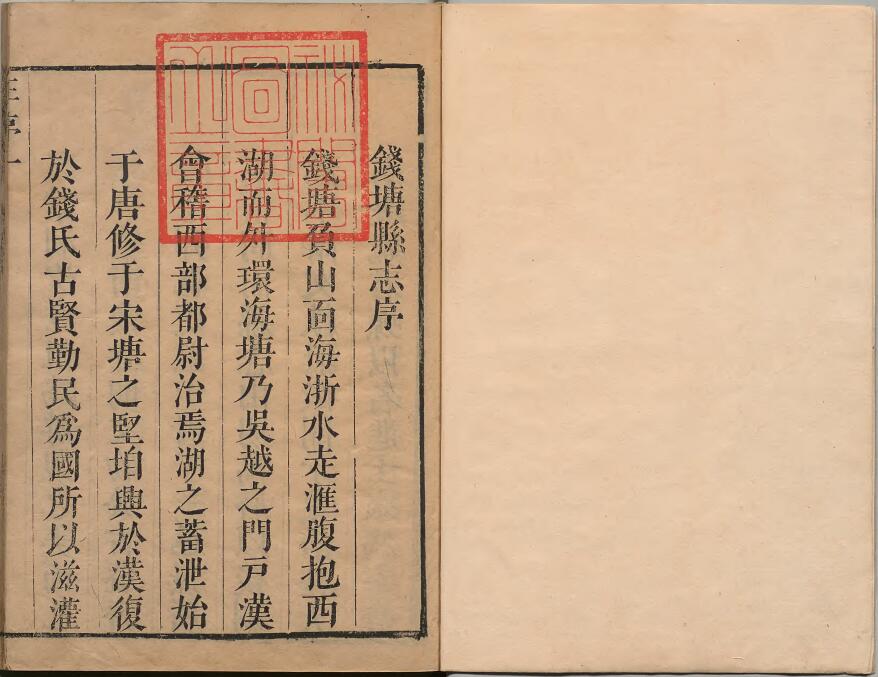 錢塘縣志序
錢塘負山面海浙水走滙腹抱西
湖而外環海塘乃吳越之門戸漢
會稽西部都尉治焉湖之蓄泄始
于唐修于宋塘之堅埳興於漢復
於錢氏古賢勤民爲國所以滋灌
王序一